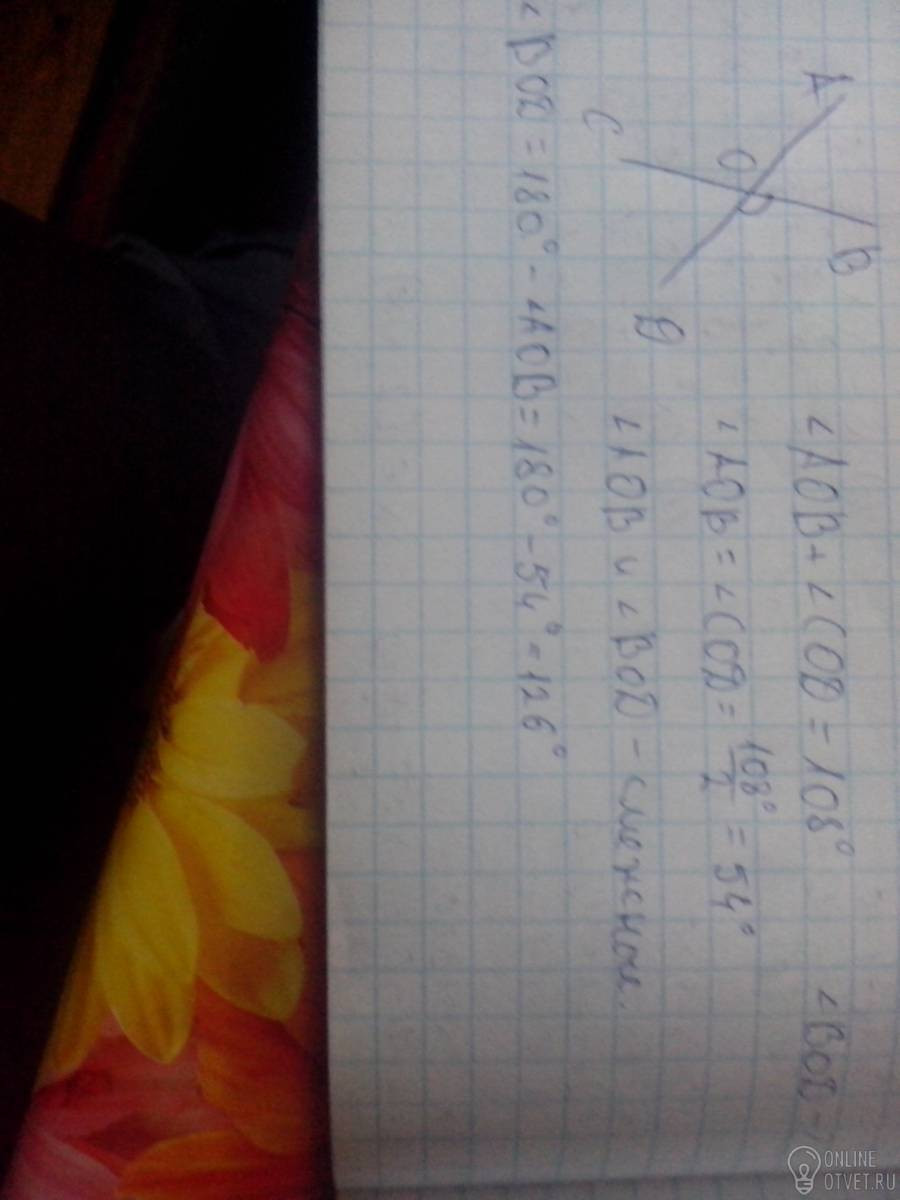 A
B
O
C
D
∠AOB + ∠COD = 108° ∠BOD -
∠AOB = ∠COD = 108°/2 = 54°
∠AOB и ∠BOD - смежные.
∠BOD = 180° - ∠AOB = 180° - 54° = 126°
ONLINE
OTVET.RU